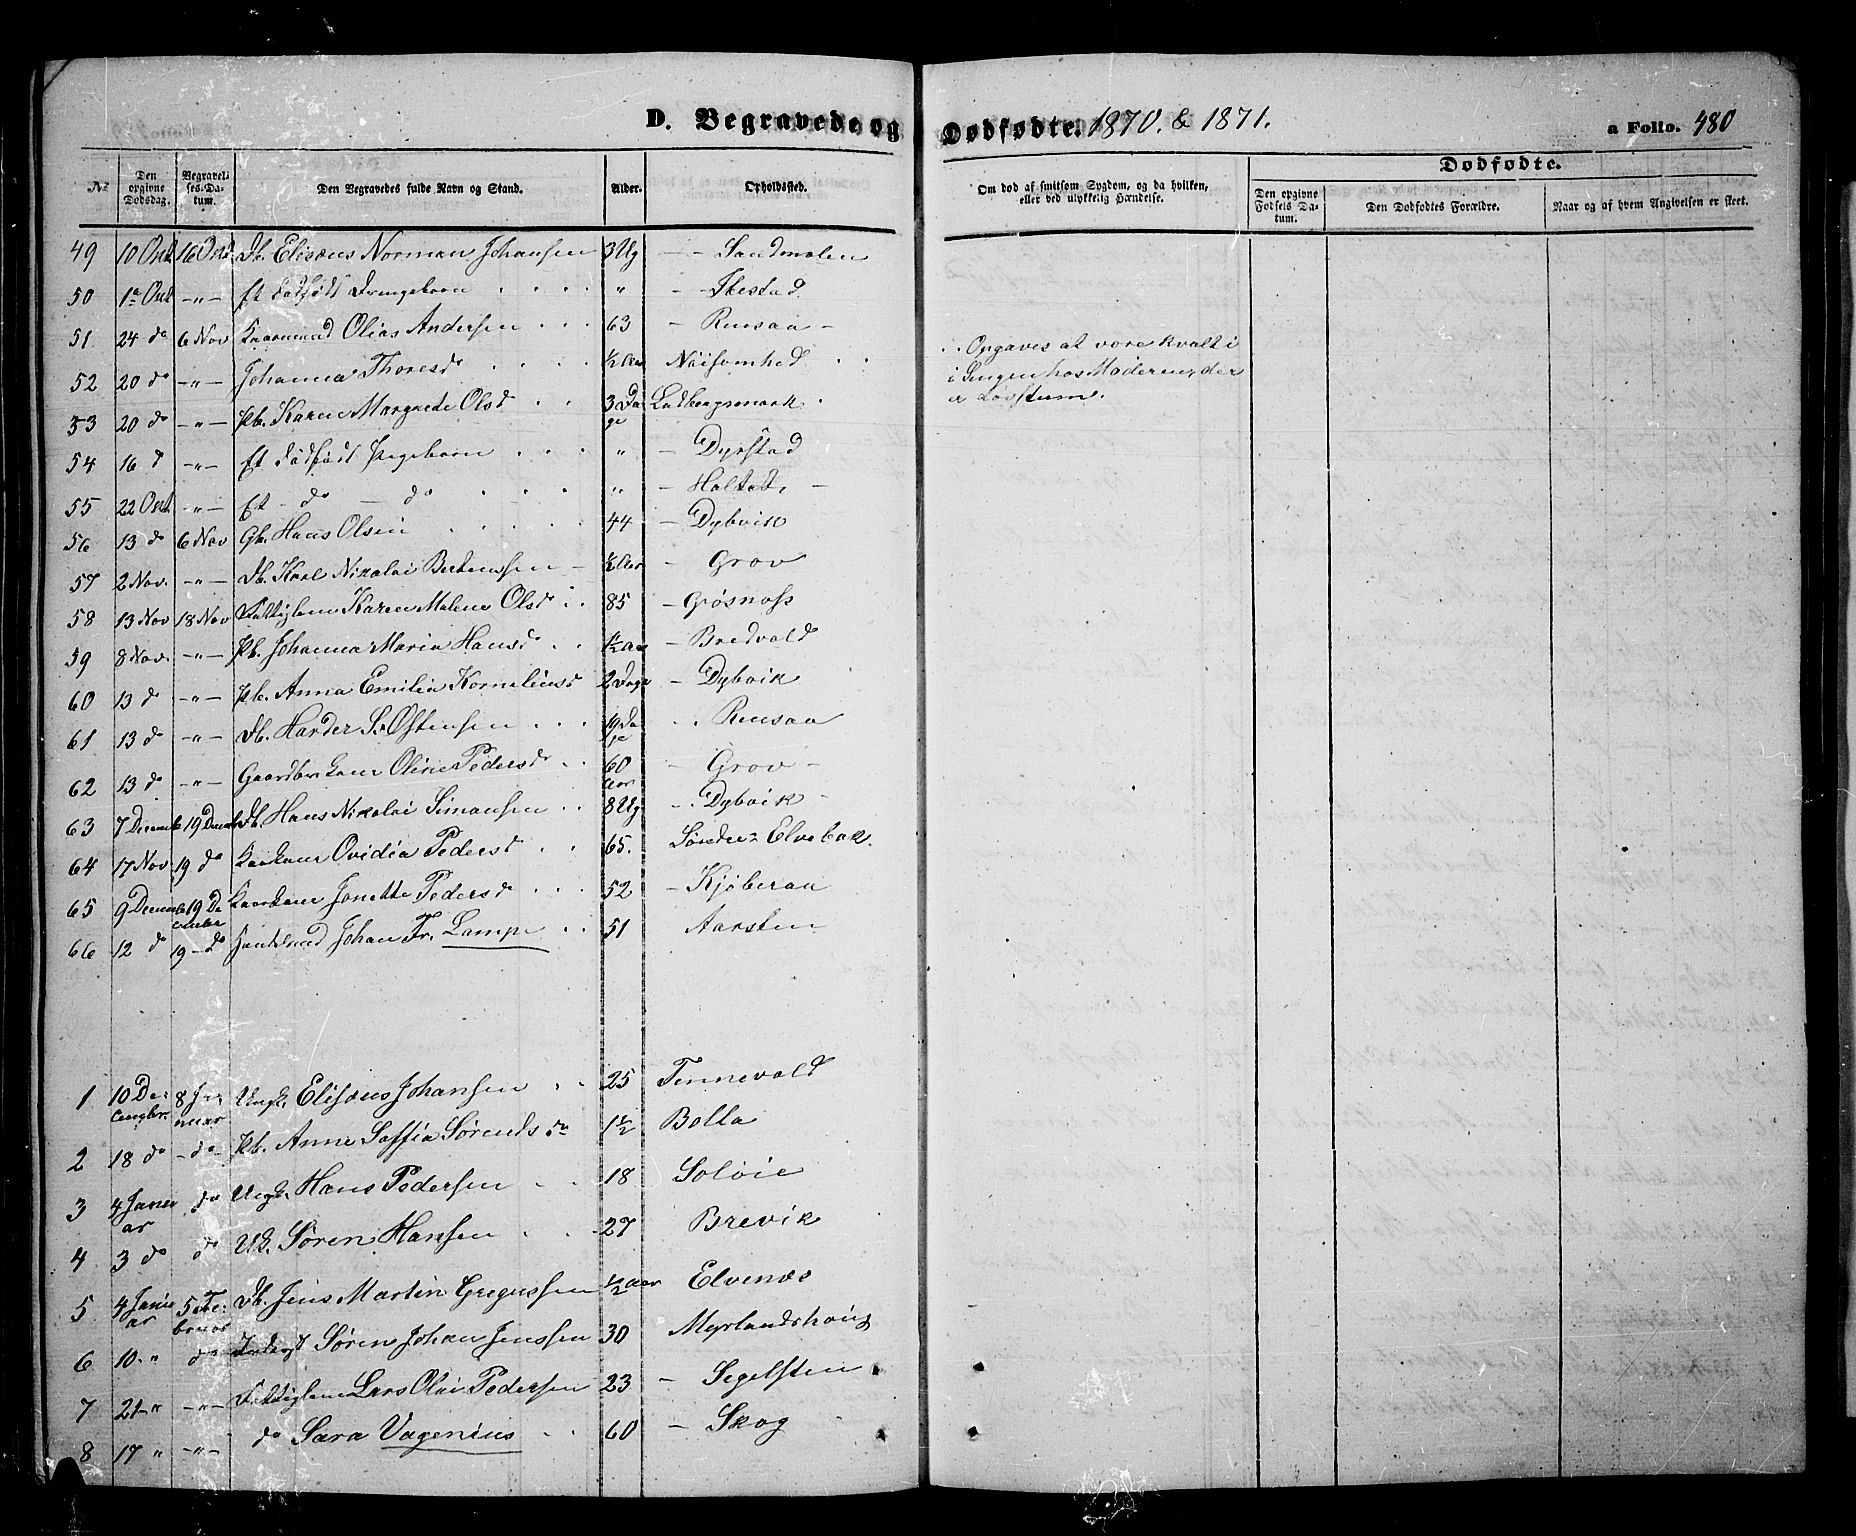 D. Begravede og Dødfødte. 1870. & 1871. a Folio. 480
Dødfødte.
№ Den opgivne Dødsdag. Begravelses-Datum. Den Begravedes fulde Navn og Stand. Alder. Opholdssted. Om død af smitsom Sygdom, og da hvilken, eller ved ulykkelig Hændelse. Den opgivne Fødsels Datum. Den Dødfødtes Forældre. Naar og af hvem Angivelsen er skeet.
49 10 Oct 16 Oct Db. Elisæus Norman Johansen 3 Ug — Sandmolen
50 Oct —"— Et dødfødt Drengebarn " — Ibestad
51 24 do 6 Nov Olias Andersen 63 — Rensaa —
52 20 do —"— Johanna Thoresd ½ Aar
53 20 do —"— Pb. Karen Margrete Olsd 3 Dage Ladbergsmark
. . Opgaves at være kvalt i
i Sengen hos Moderen, der
er Løstum.
54 16 d —"— Et dødfødt Pigebarn " — Dyrstad
55 22 Oct —"— Et - do — do " — Halstad, —
56 13 do 6 Nov Gb. Hans Olsen 44 — Dybvik
57 2 Nov. —"— Db. Karl Nikolai Berteussen ½ Aar — Grov
58 13 Nov 18 Nov Fattiglem Karen Malena Olsd 85 — Grøsnæss
59 8 Nov. —"— Pb. Johanna Maria Hansd ½ Aar — Bredvold
60 13 d —"— Pb. Anna Emilia Korneliusd 2 Dage — Dybvik
61 13 do —"— Db. Harder S. Østensen 19 Dage Rensaa
62 13 do —"— Gaardbr kone Oline Pedersd 60 Aar — Grov —
63 7 Decemb 19 Decemb Db. Hans Nikolai Simonsen 8 Ug — Dybvik —
64 17 Nov 19 do Ovidia Pedersd 65. Søndre Elvebak.
65 9 Decemb 19 December Jonette Pedersd 52 — Kjøberan
66 12 do 19 – do Johan Fr. Lampe 51 Aarsten
1 10 December 8 Januar Ungk. Elisæus Johansen 25 Tennevold
2 18 do – do – Pb. Anne Soffia Sørensda 1½ Bolla
3 4 Januar do Ungk. Hans Pedersen 18 Soløie
4 3 do do Uk. Søren Hansen 27 Brevik
5 4 Januar 5 Februar Db. Jens Martin Gregussen ½ Aar Elvenæs
6 10 " do Inderst Søren Johan Jenssen 30 Myrlandshaug
7 21 " —"— Fattiglem Lars Olai Pedersen 23 — Segelsten
8 17 " —"— do Sara Vagenius 60 — Skog